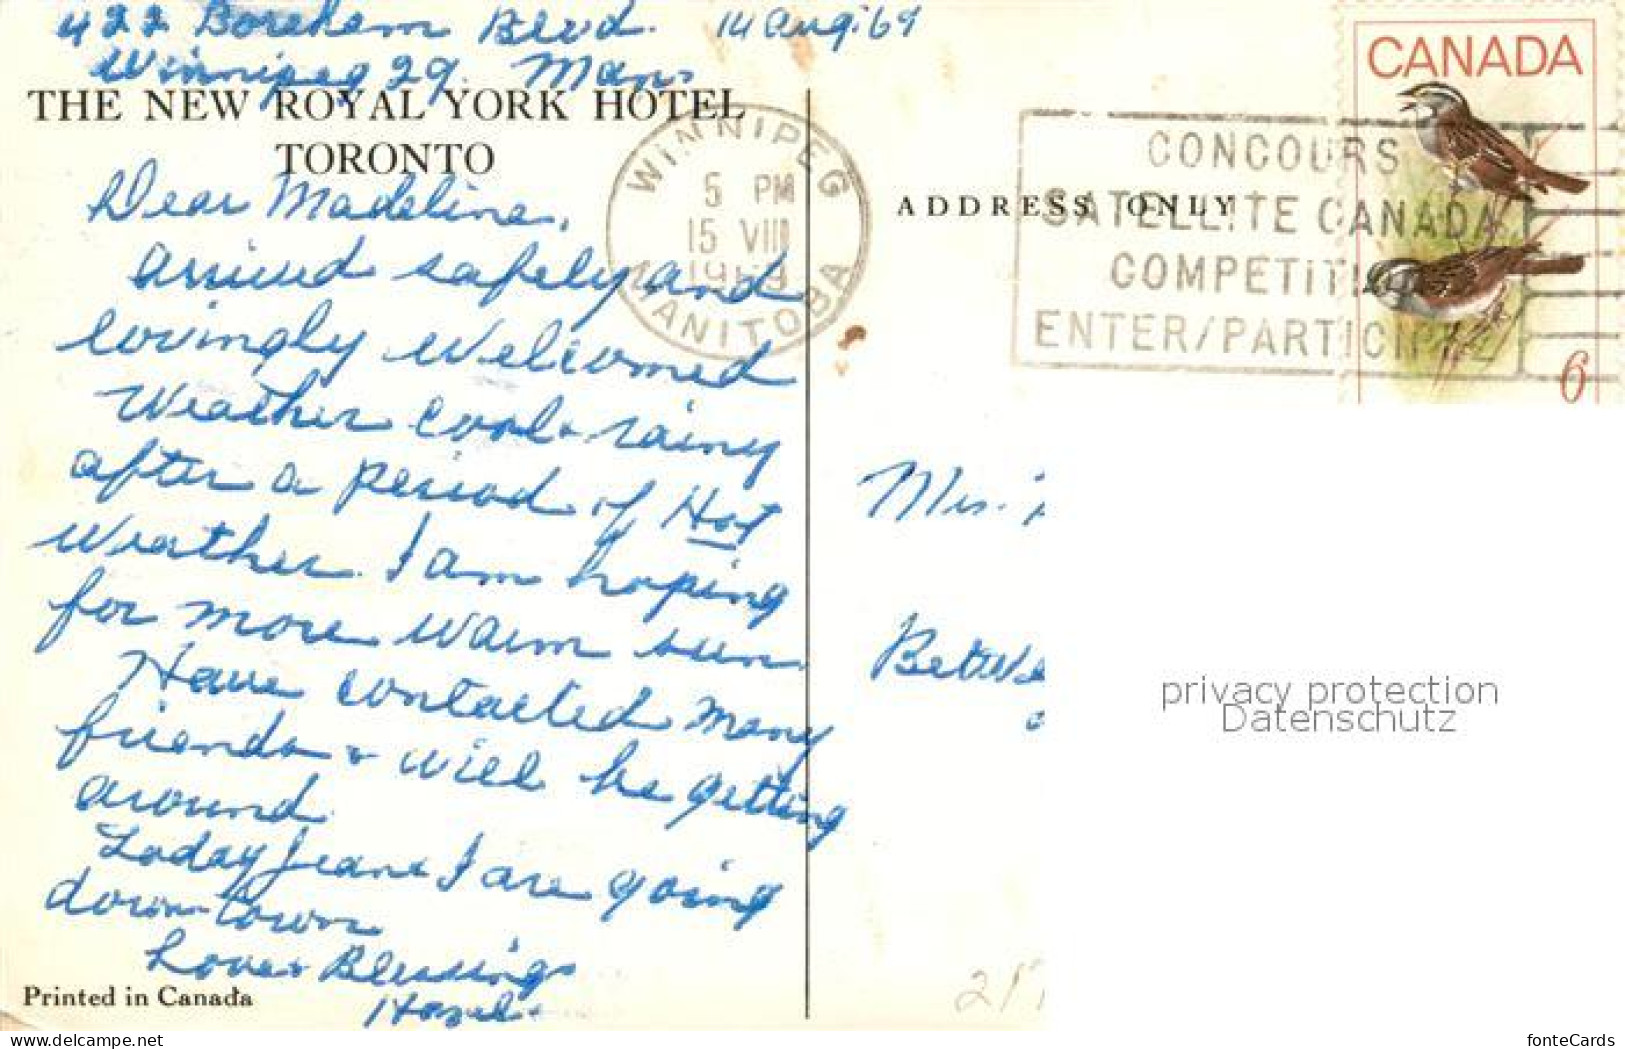 422 Boreham Blvd. 14 Aug. 69
Winnipeg 29. Man.
THE NEW ROYAL YORK HOTEL
TORONTO
Dear Madeline,
Arrived safely and
lovingly welcomed
Weather cool & rainy
after a period of Hot
weather. I am hoping
for more warm sun.
Have contacted many
friends & will be getting
around.
Today Jean & I are going
down-town
Love & Blessings
Hazel.
Printed in Canada
WINNIPEG
5 PM
15 VIII
1969
MANITOBA
CONCOURS
SATELLITE CANADA
COMPETITION
ENTER/PARTICIPEZ
CANADA
6
ADDRESS ONLY
privacy protection
Datenschutz
My ebay name
fonteCards